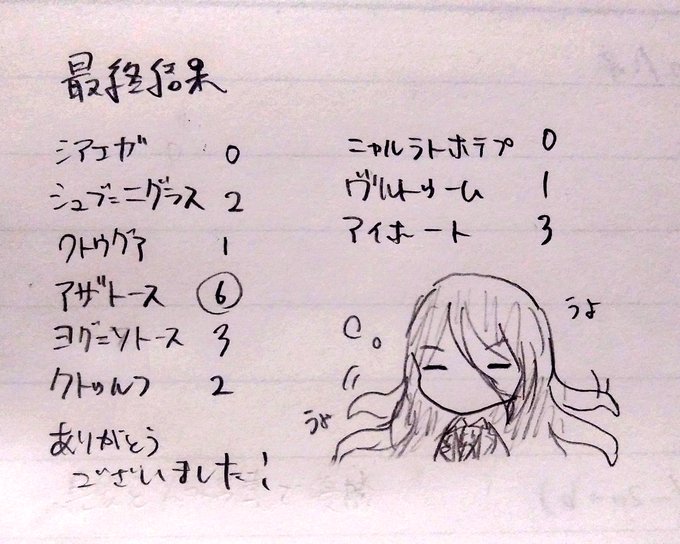 最終結果
シアエガ 0
シュブ=ニグラス 2
クトゥグア 1
アザトース 6
ヨグ=ソトース 3
クトゥルフ 2
ニャルラトホテプ 0
ヴルトゥーム 1
アイホート 3
ありがとう
ございました!
うよ
うよ